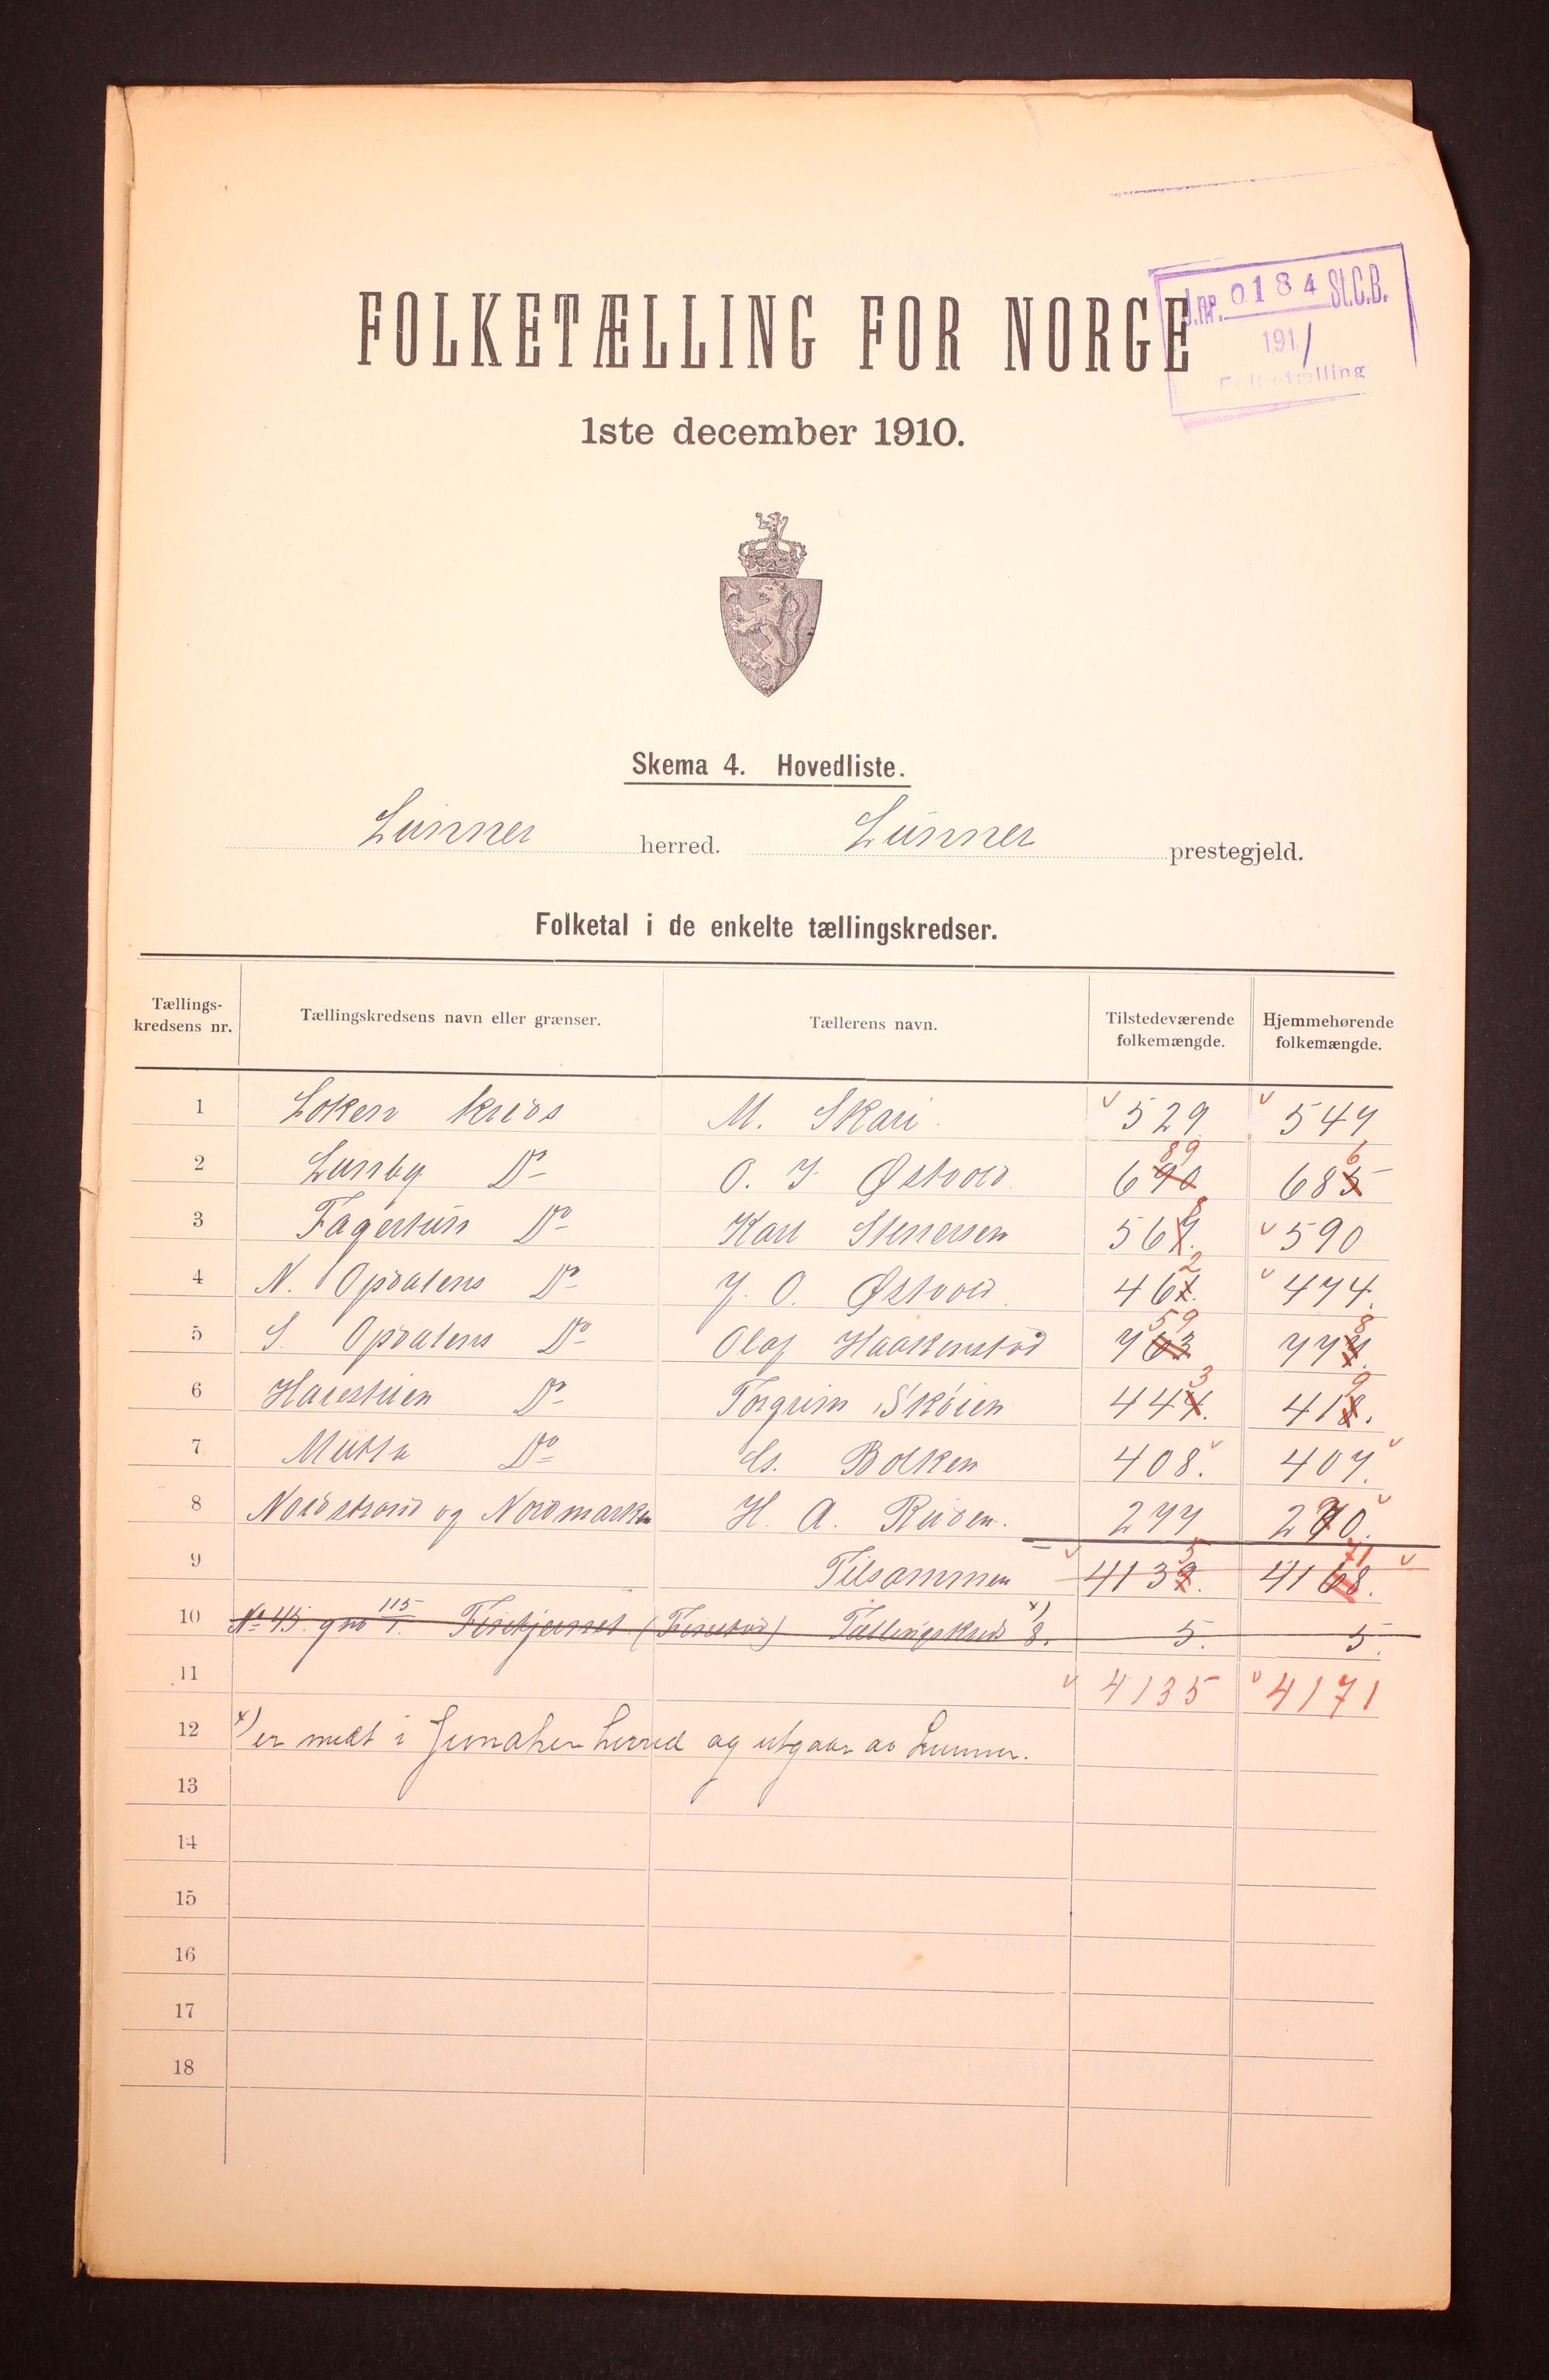 J.nr. 0184 St.C.B.
1911
Folketælling
FOLKETÆLLING FOR NORGE
1ste december 1910.
Skema 4. Hovedliste.
Lunner herred. Lunner prestegjeld.
Folketal i de enkelte tællingskredser.
Tællings-kredsens nr. Tællingskredsens navn eller grænser. Tællerens navn. Tilstedeværende folkemængde. Hjemmehørende folkemængde.
1 Loken kreds M. Skari. 529 547
89 6
2 Lunby Do O. J. Østvold. 690 685
8
3 Fagertun Do Karl Stenersen 567. 590
2
4 N. Opdalens Do J. O. Østvold. 461. 474.
59 8
5 S. Opdalens Do Olaf Haakenstad 763 777.
3 9
6 Harestuen Do Torgrim Skøien 444. 418.
7 Mutta Do Bolken 408. 407.
8 Nordstrand og Nordmarken H. A. Ruden. 277 270.
5 71
9 Tilsammen 4139. 4168.
10 No 45. gno 115/1. (Finstad) Tællingskreds 8. x) 5. 5.
11 4135 4171
12 x) er medt i Jevnaker herred og utgaar av Lunner.
13
14
15
16
17
18